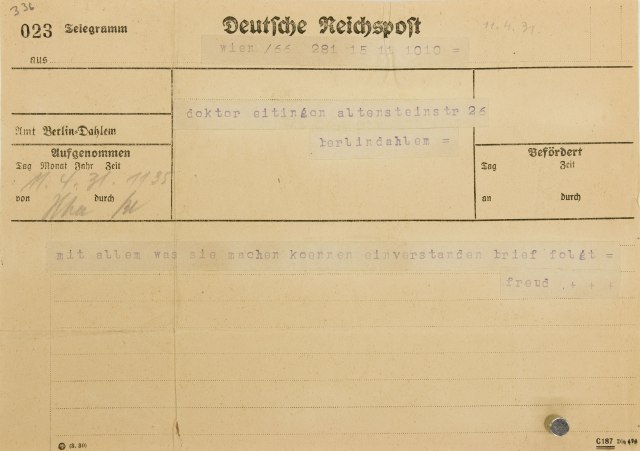 336
023 Telegramm Deutsche Reichspost 11.4.31.
wien /66 281 15 11 1010 =
aus
doktor eitingon altensteinstr 26
Amt Berlin-Dahlem berlindahlem =
Aufgenommen Befördert
Tag Monat Jahr Zeit Tag Zeit
11. 4. 31. 1135
von durch an durch
mit allem was sie machen koennen einverstanden brief folgt =
freud + + +
C187 Din 476